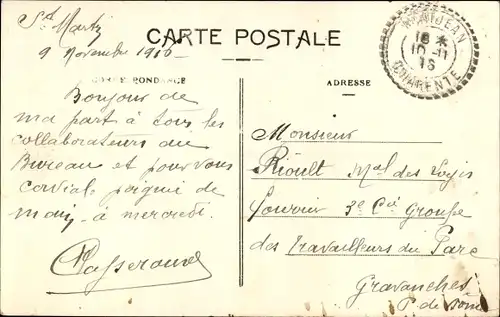 St Martz
9 Novembre 1916
CARTE POSTALE
CORRESPONDANCE
ADRESSE
MONTJEAN
16 *
10-11
16
CHARENTE
Bonjour de
ma part à tous les
collaborateurs du
Bureau et pour vous
cordiale poignée de
main à mercredi.
Monsieur
Rioult Mal des Logis
fourrier 3e Cie Groupe
des Travailleurs du Parc
Gravanches
P. de Dôme